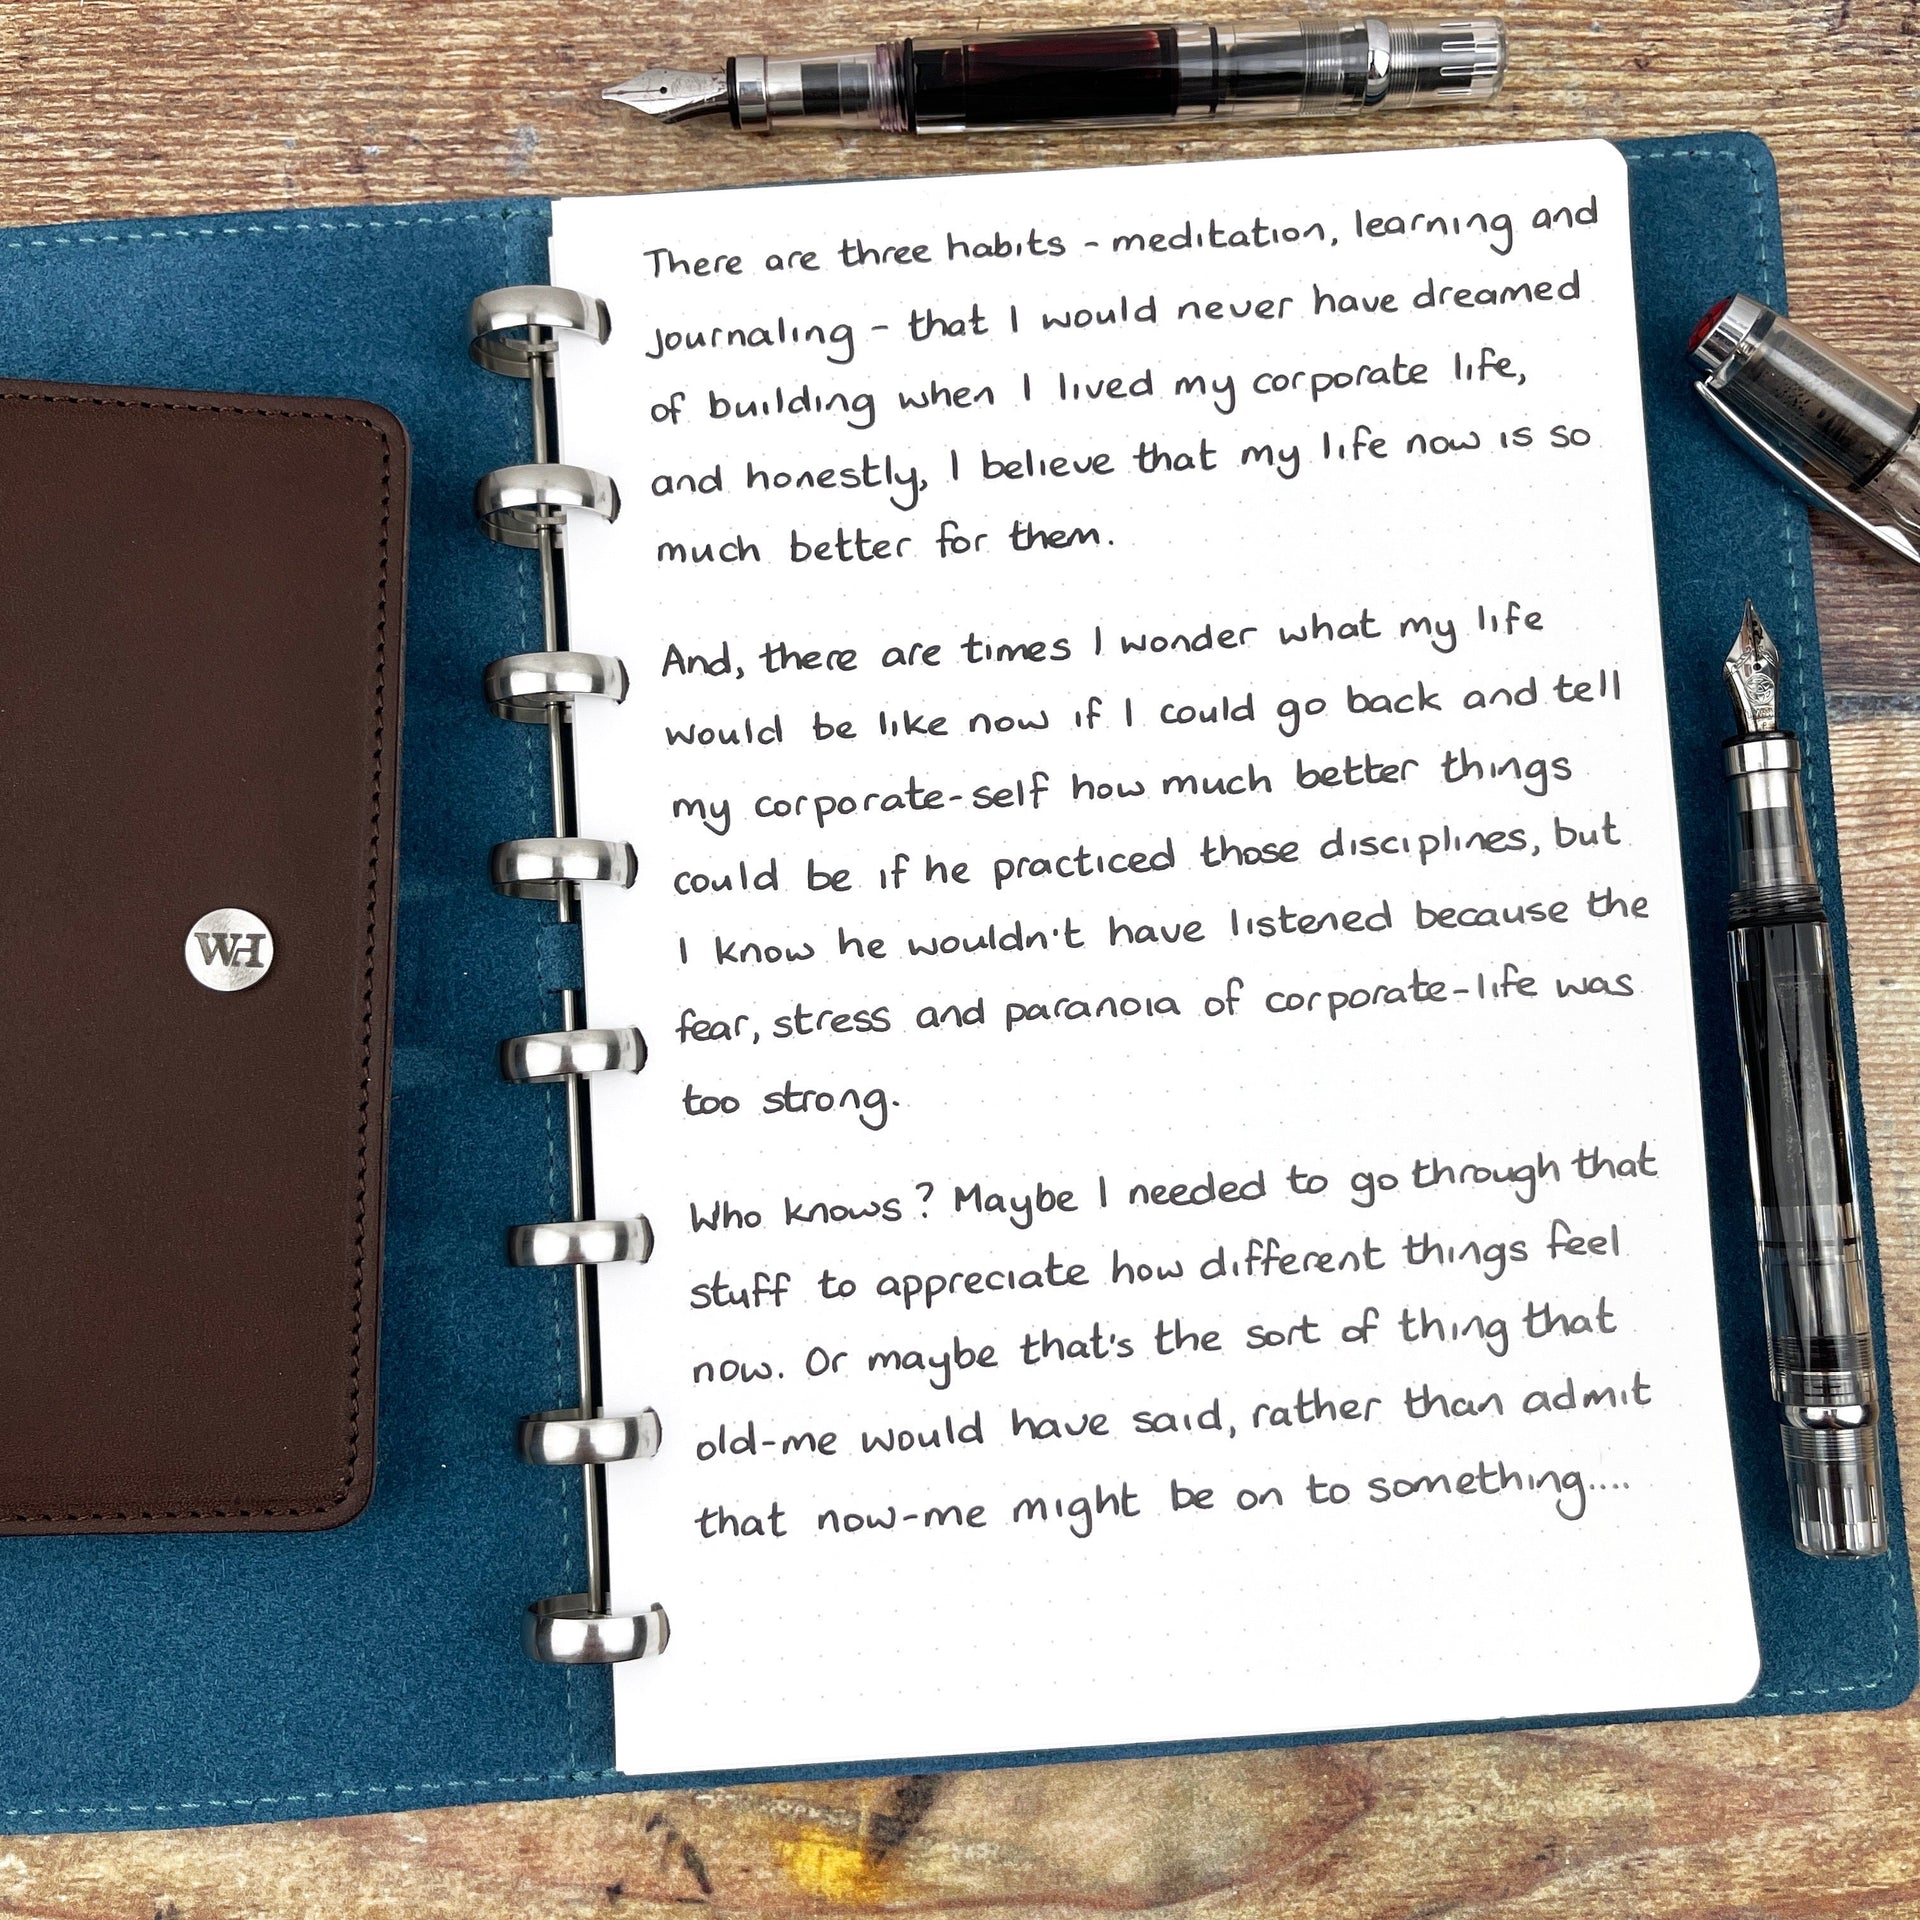 WH
There are three habits - meditation, learning and
journaling - that I would never have dreamed
of building when I lived my corporate life,
and honestly, I believe that my life now is so
much better for them.
And, there are times I wonder what my life
would be like now if I could go back and tell
my corporate-self how much better things
could be if he practiced those disciplines, but
I know he wouldn't have listened because the
fear, stress and paranoia of corporate-life was
too strong.
Who knows? Maybe I needed to go through that
stuff to appreciate how different things feel
now. Or maybe that's the sort of thing that
old-me would have said, rather than admit
that now-me might be on to something....